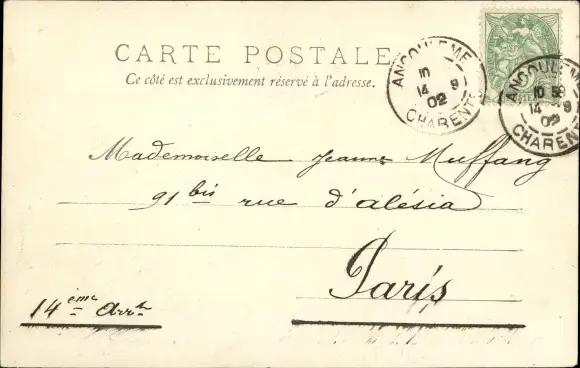 CARTE POSTALE
Ce côté est exclusivement réservé à l'adresse.
ANGOULEME
10
14 9
02
CHARENTE
ANGOULEME
10
14 9
02
CHARENTE
Mademoiselle Jeanne Muffang
91 bis rue d'alésia
Paris
14ème Arrt